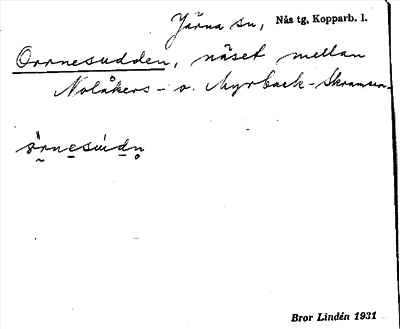 Järna sn, Nås tg, Kopparb. l.
Orrnesudden, näset mellan
Nolåkers- o. Myrback-Skramsen-
Bror Lindén 1931